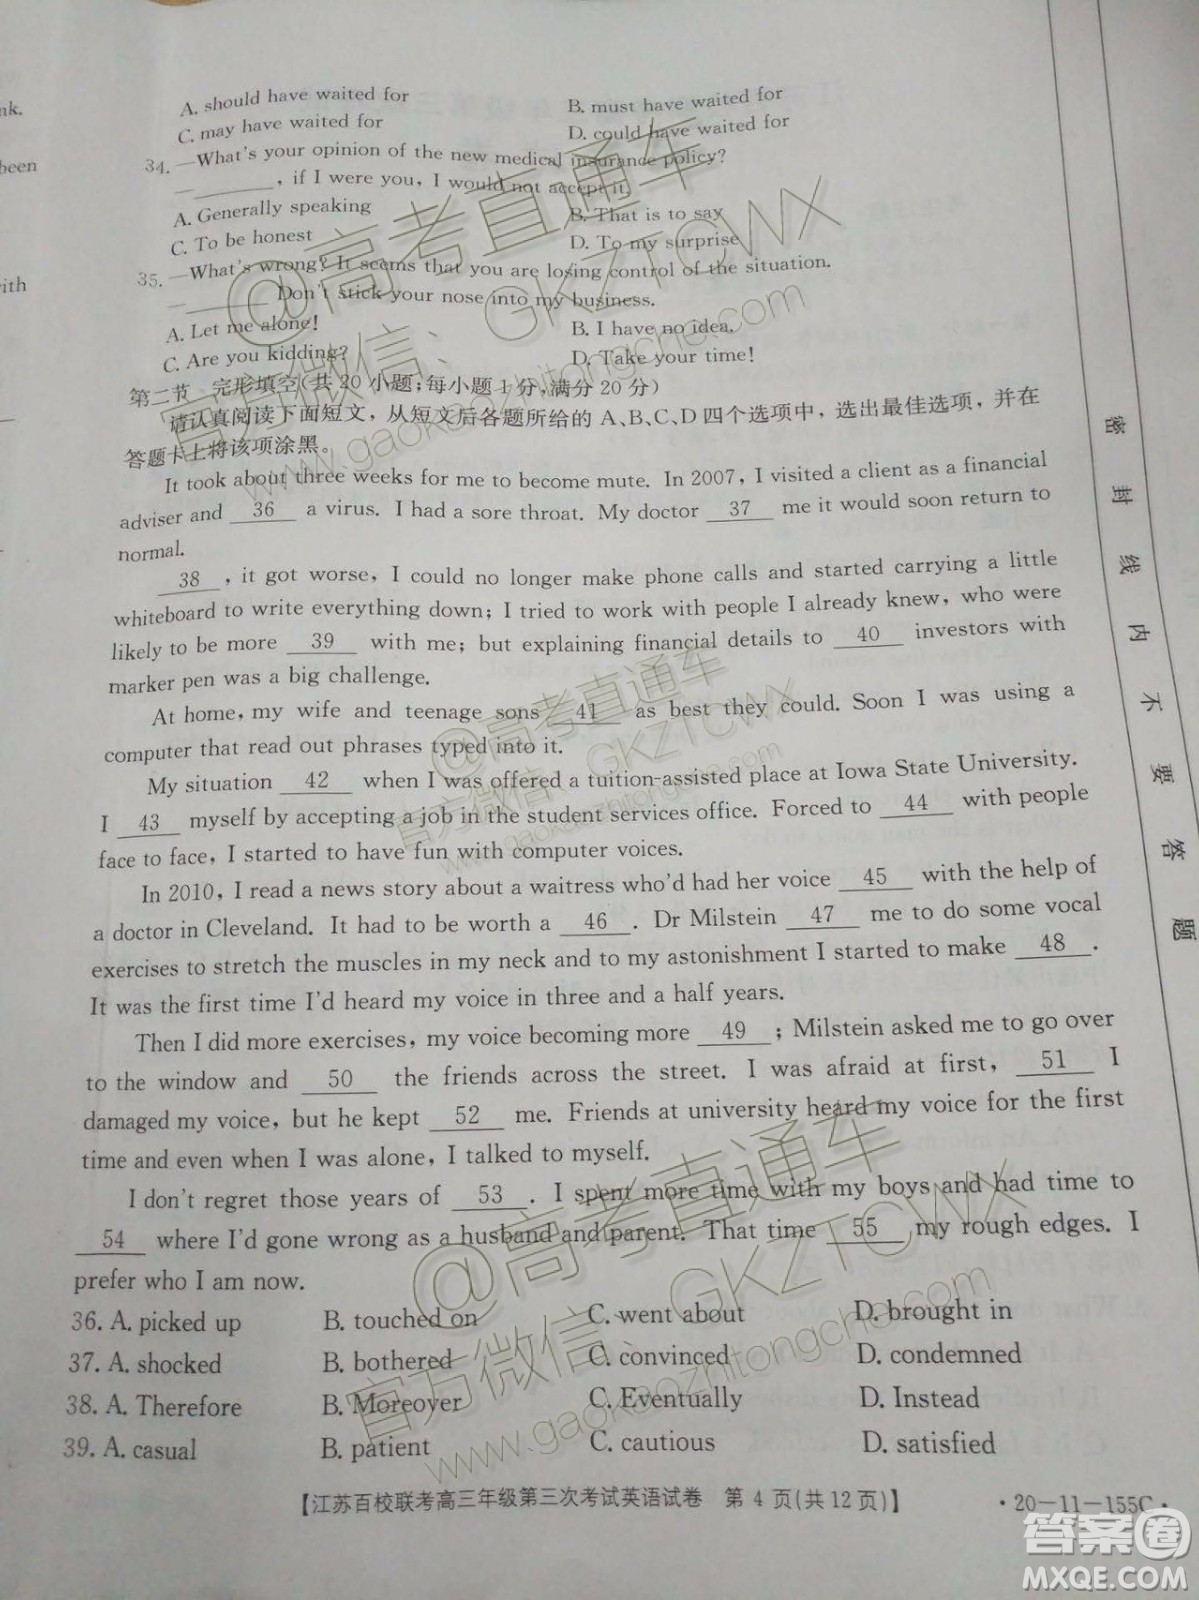 nk.
been
with
A. should have waited for B. must have waited for
C. may have waited for D. could have waited for
34. —What's your opinion of the new medical insurance policy?
—________, if I were you, I would not accept it.
A. Generally speaking B. That is to say
C. To be honest D. To my surprise
35. —What's wrong? It seems that you are losing control of the situation.
—________ Don't stick your nose into my business.
A. Let me alone! B. I have no idea.
C. Are you kidding? D. Take your time!
第二节 完形填空(共20小题;每小题1分,满分20分)
请认真阅读下面短文,从短文后各题所给的A、B、C、D四个选项中,选出最佳选项,并在
答题卡上将该项涂黑。
It took about three weeks for me to become mute. In 2007, I visited a client as a financial
adviser and 36 a virus. I had a sore throat. My doctor 37 me it would soon return to
normal.
38 , it got worse, I could no longer make phone calls and started carrying a little
whiteboard to write everything down; I tried to work with people I already knew, who were
likely to be more 39 with me; but explaining financial details to 40 investors with
marker pen was a big challenge.
At home, my wife and teenage sons 41 as best they could. Soon I was using a
computer that read out phrases typed into it.
My situation 42 when I was offered a tuition-assisted place at Iowa State University.
I 43 myself by accepting a job in the student services office. Forced to 44 with people
face to face, I started to have fun with computer voices.
In 2010, I read a news story about a waitress who'd had her voice 45 with the help of
a doctor in Cleveland. It had to be worth a 46 . Dr Milstein 47 me to do some vocal
exercises to stretch the muscles in my neck and to my astonishment I started to make 48 .
It was the first time I'd heard my voice in three and a half years.
Then I did more exercises, my voice becoming more 49 ; Milstein asked me to go over
to the window and 50 the friends across the street. I was afraid at first, 51 I
damaged my voice, but he kept 52 me. Friends at university heard my voice for the first
time and even when I was alone, I talked to myself.
I don't regret those years of 53 . I spent more time with my boys and had time to
54 where I'd gone wrong as a husband and parent. That time 55 my rough edges. I
prefer who I am now.
36. A. picked up B. touched on C. went about D. brought in
37. A. shocked B. bothered C. convinced D. condemned
38. A. Therefore B. Moreover C. Eventually D. Instead
39. A. casual B. patient C. cautious D. satisfied
【江苏百校联考高三年级第三次考试英语试卷 第4页(共12页)】 ·20-11-155C·
密封线内不要答题
@高考直通车
官方微信:GKZTCWX
www.gaokaozhitongche.com
@高考直通车
官方微信:GKZTCWX
www.gaokaozhitongche.com
@高考直通车
官方微信:GKZTCWX
www.gaokaozhitongche.com
答案圈
MXQE.COM